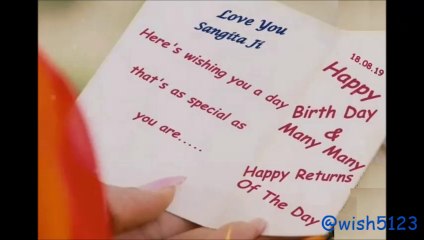 Love You
Sangita Ji
Here's wishing you a day
that's as special as
you are.....
18.08.19
Happy
Birth Day
&
Many Many
Happy Returns
Of The Day
@wish5123